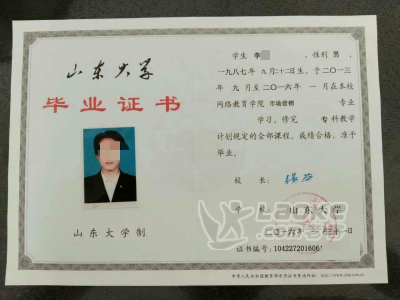 山东大学
毕业证书
山东大学制
学生 李 ,性别 男 ,
一九八七年 九月二十二日生,于二〇一三
年 九 月至二〇一六年 一 月在本校
网络教育学院 市场营销 专业
学习,修完 专 科教学
计划规定的全部课程,成绩合格,准予
毕业。
校 长:
学 校: 山东大学
二〇一六年 月 日
证书编号:104227201606